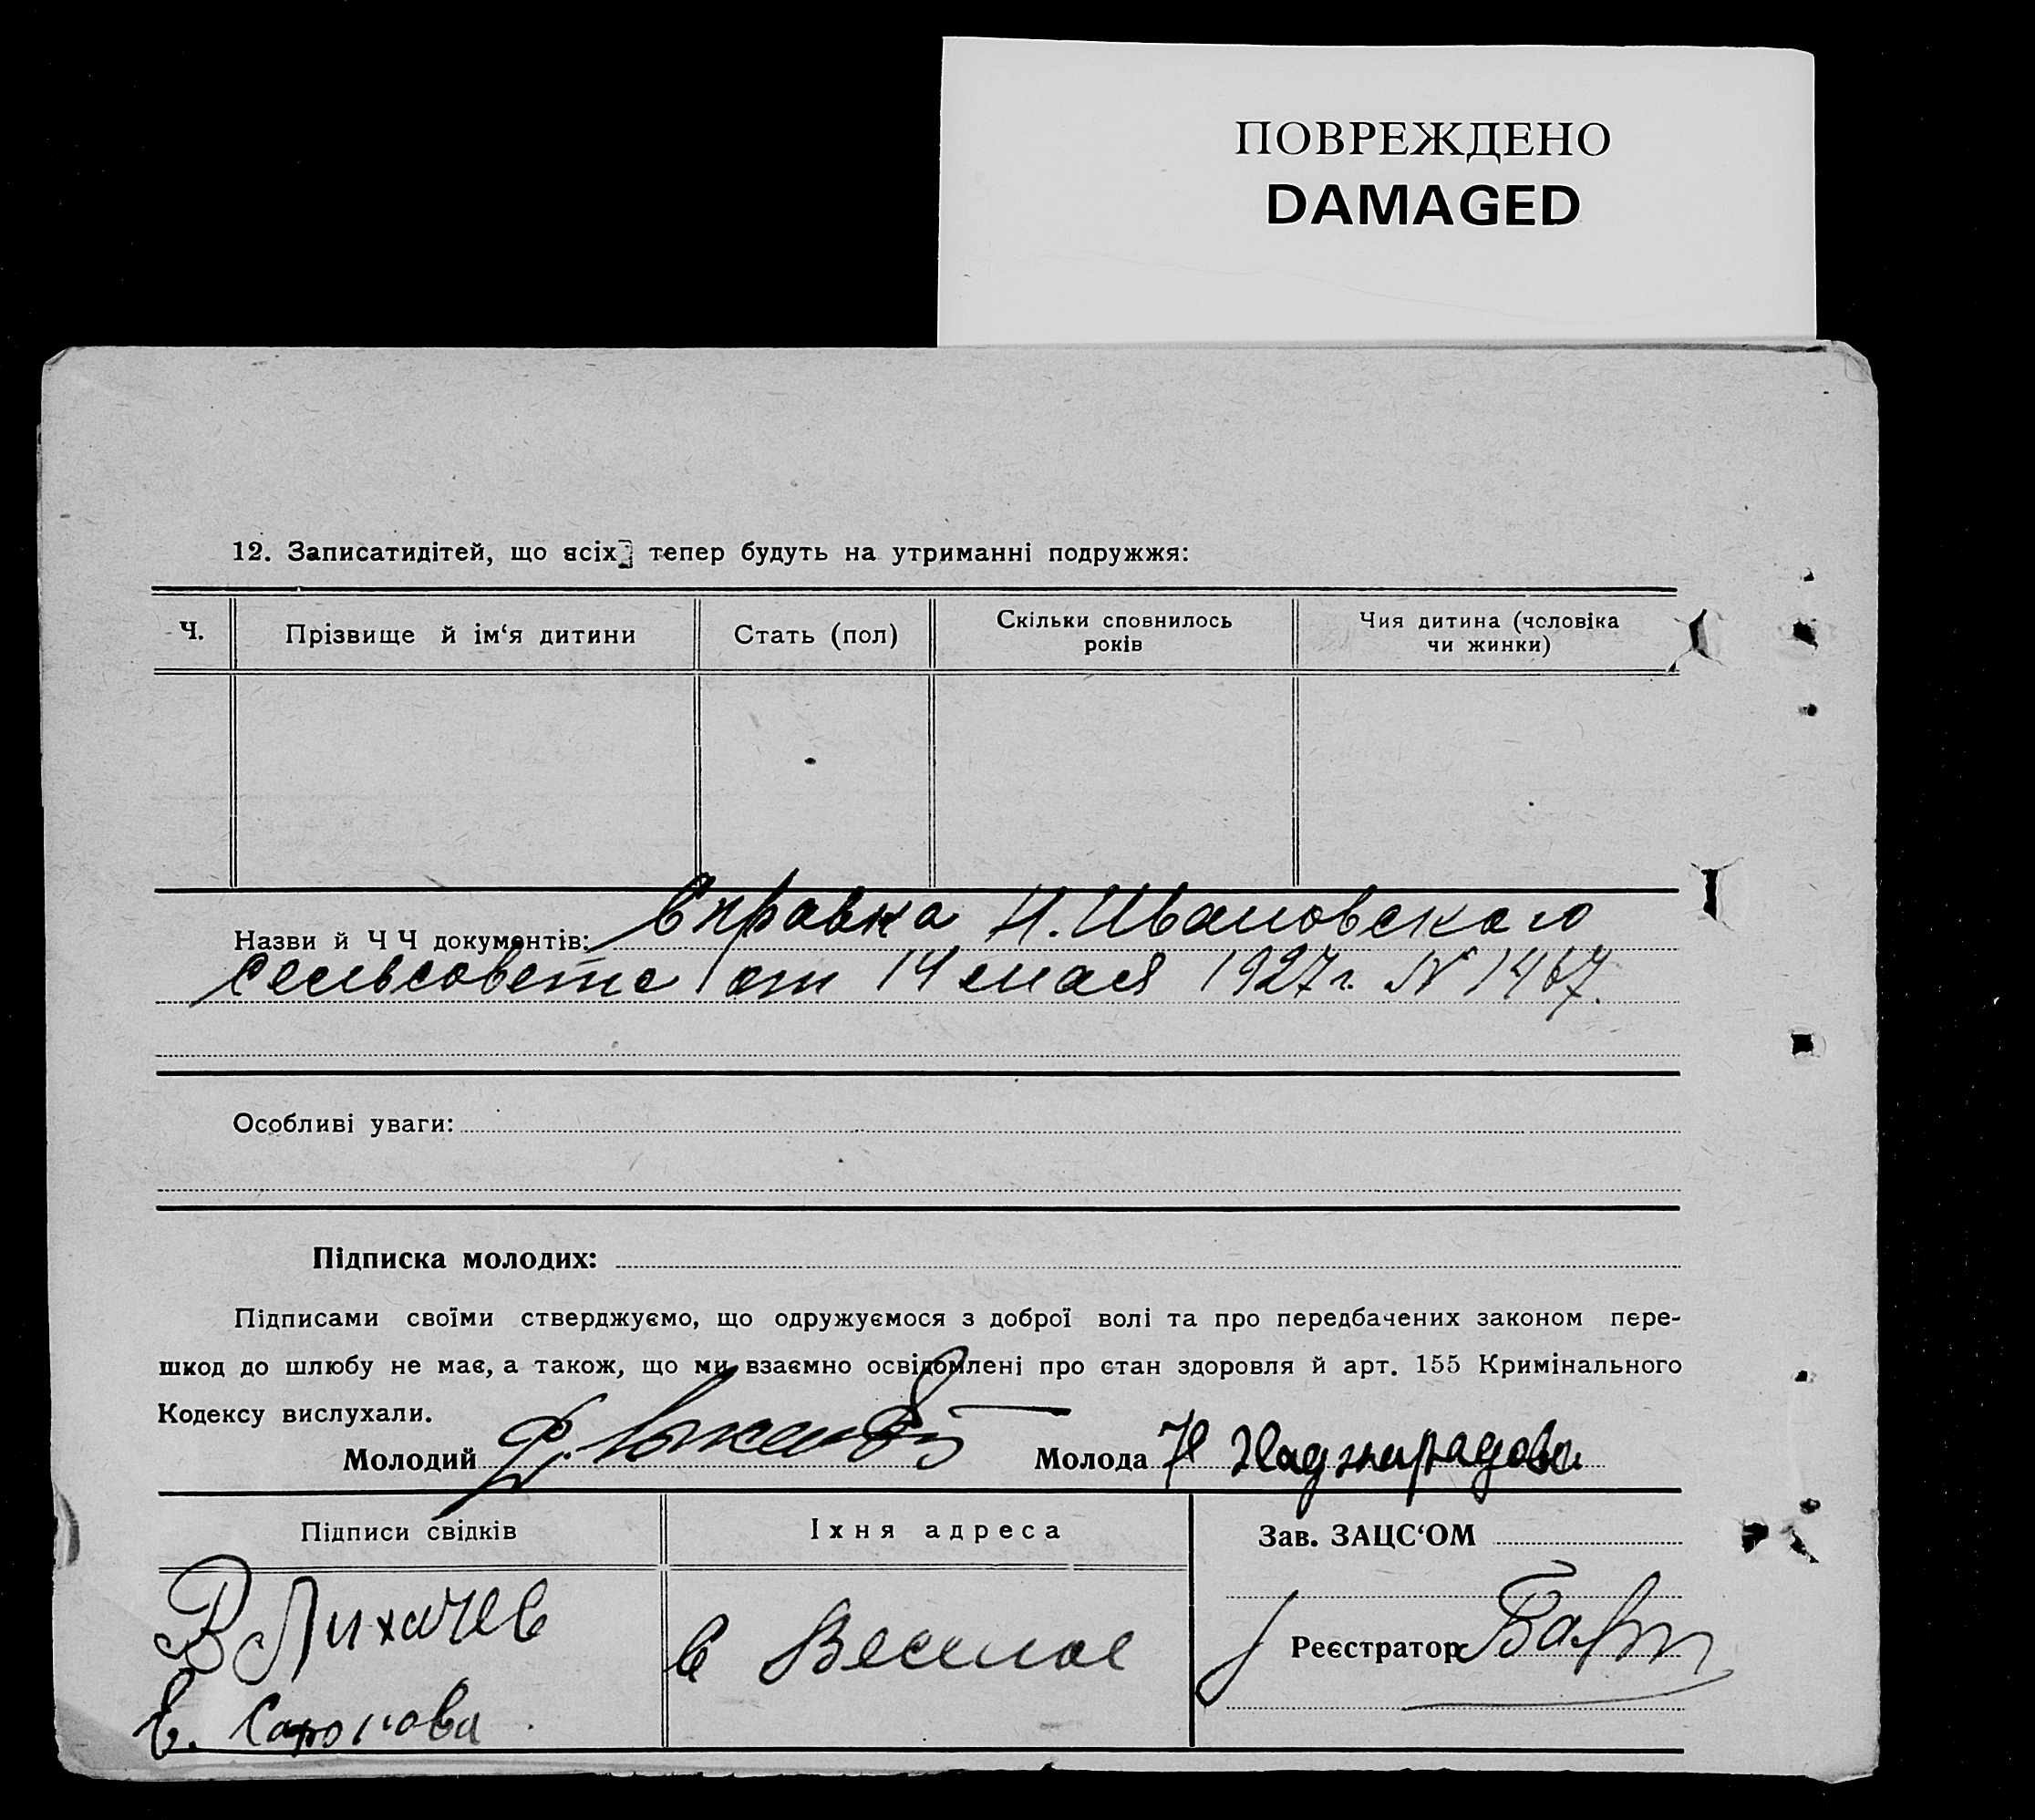 ПОВРЕЖДЕНО
DAMAGED
12. Записатидітей, що всіх тепер будуть на утриманні подружжя:
Ч.
Прізвище й ім‘я дитини
Стать (пол)
Скільки сповнилось
років
Чия дитина (чоловіка
чи жинки)
Назви й Ч Ч документів: Справка Н. Ивановского
сельсовета от 14 мая 1927 г. № 1467.
Особливі уваги:
Підписка молодих:
Підписами своїми стверджуємо, що одружуємося з доброї волі та про передбачених законом пере-
шкод до шлюбу не має, а також, що ми взаємно освідомлені про стан здоровля й арт. 155 Кримінального
Кодексу вислухали.
Молодий
Молода
Підписи свідків
Їхня адреса
Зав. ЗАЦС‘ОМ
В Лихачев
с Веселое
Реєстратор
Е.